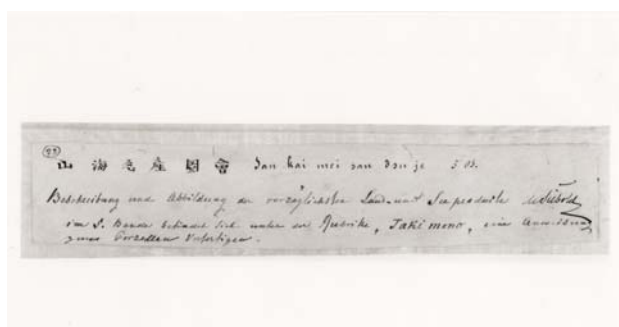 22
山海名産圖會 San kai mei san dsu je 5 Bd.
Beschreibung und Abbildung der vorzüglichsten Land- und Seeproducte v Siebold
im 5. Bande befindet sich unter der Rubrike, Jaki mono, eine Anweisung
zum Porzellan Verfertigen.